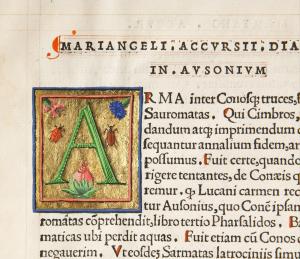 MARIANGELI ACCVRSII, DIA
IN AVSONIVM
ARMA inter Conosq; truces, f
Sauromatas. Qui Cimbros,
dandum atq; imprimendum c
sequantur annalium fidem, ar
possumus. Fuit certe, quando
rigere tentantes, de Conæis q
remur. q. Lucani carmen rec
tur Ausonius, quo Coné ipsan
romatas cõprehendit, libro tertio Pharsalidos. Ba
maticus ubi perdit aquas. Fuit etiam cũ Conos
negauerim. Vteosdẽ Sarmatas latrociniis simul